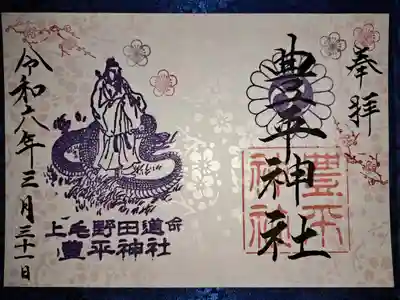 奉拝
豊平神社
豊平
神社
令和六年三月三十一日
上毛野田道命
豊平神社